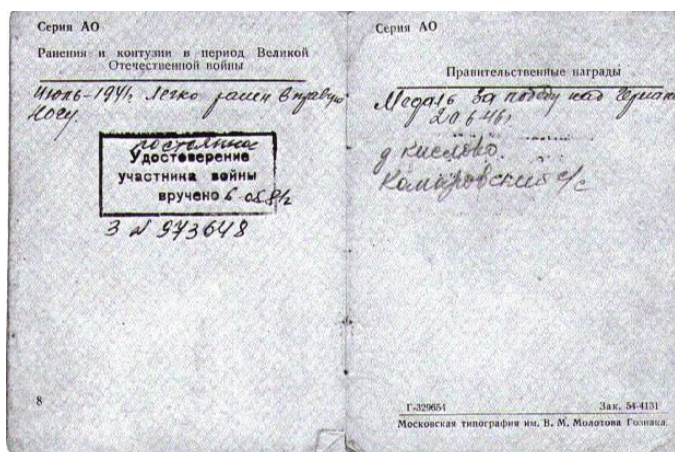 Серия АО
Ранения и контузии в период Великой
Отечественной войны
Июль-1941г Легко ранен в правую
ногу.
Удостоверение
участника войны
вручено
З № 973648
8
Серия АО
Правительственные награды
Медаль за победу над Герман
20 6 46г
д Кислово.
Комаровский с/с
Г-329654 Зак. 54-4131
Московская типография им. В. М. Молотова Гознака.